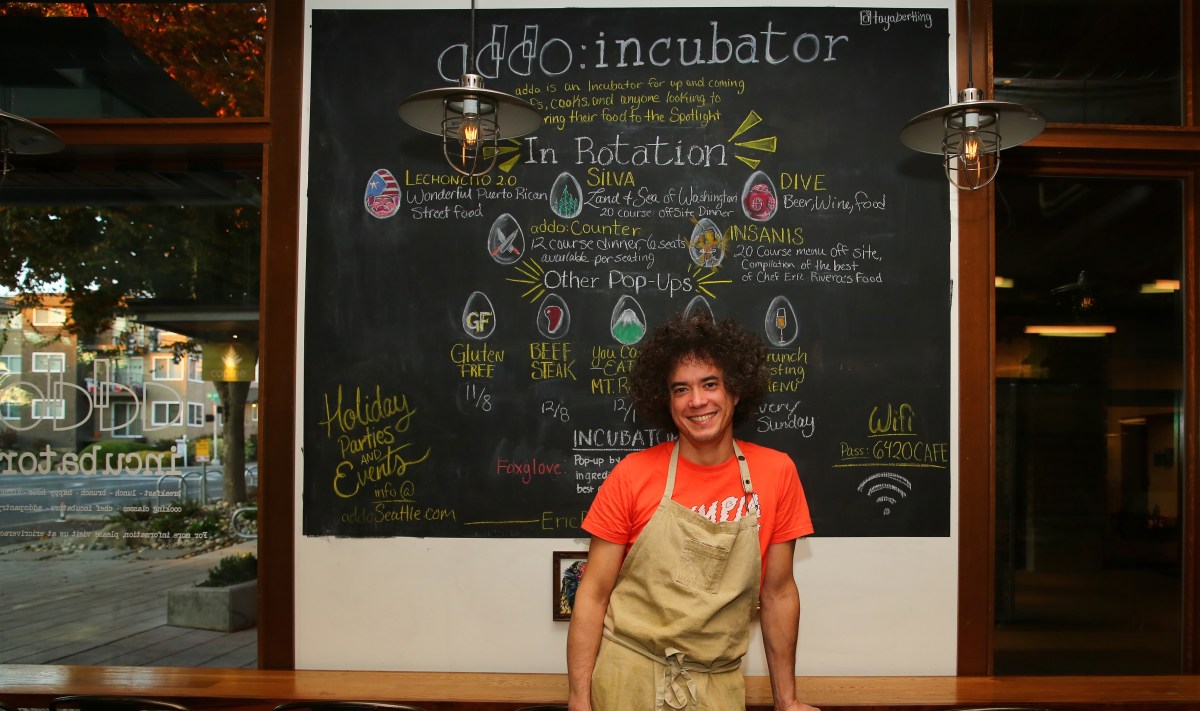 @tayabertling
addo:incubator
addo is an Incubator for up and coming
cooks, and anyone looking to
their food to the Spotlight
In Rotation
LECHONCITO 2.0
Wonderful Puerto Rican
Street food
SILVA
Land & Sea of Washington
20 course offsite Dinner
DIVE
Beer, Wine, food
addo:Counter
12 course dinner,
available per seating
INSANIS
20 Course menu off site,
Compilation of the best
of Chef Eric Rivera's Food
Other Pop-Ups
GF
Gluten
FREE
11/8
BEEF
STEAK
12/8
You
EAT
MT.
Sunday
Holiday
Parties
AND
Events
info@
addoSeattle.com
INCUBATO
Foxglove:
Pop-up by
Wifi
Pass: 6420CAFE
addo
incubator
breakfast · lunch · brunch · happy hour
cooking classes
For more information, please visit us at